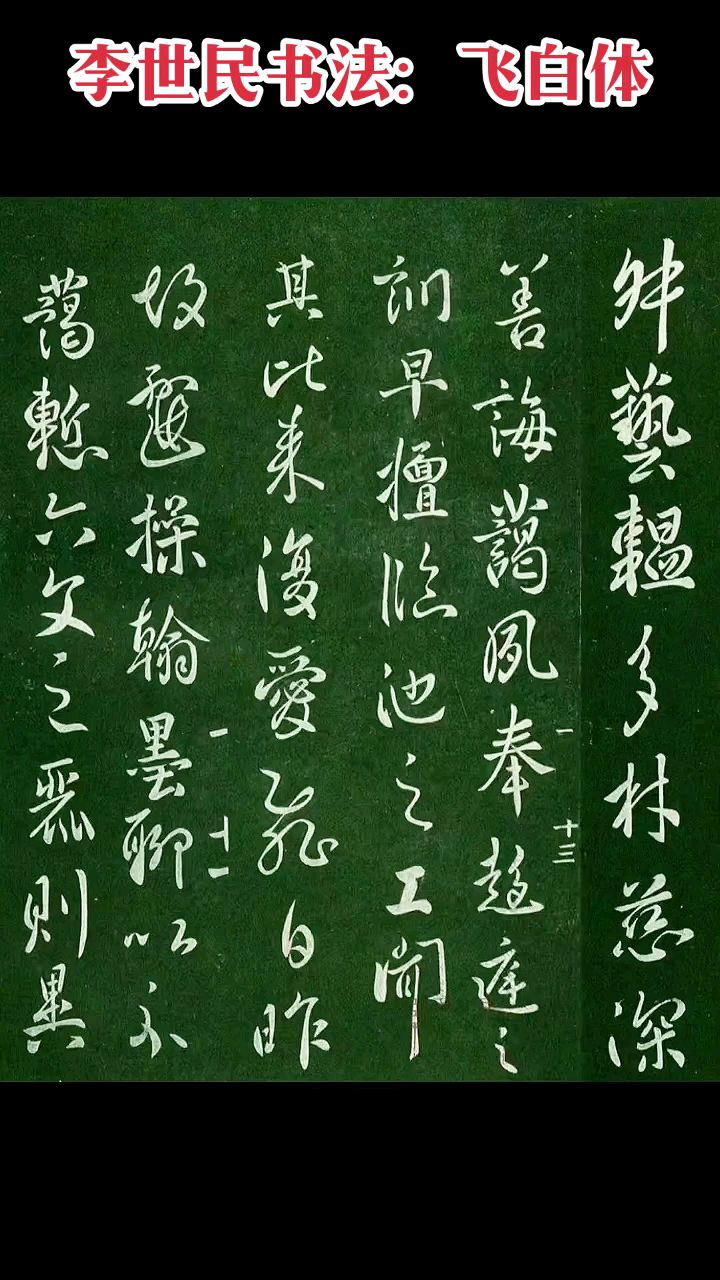 李世民书法: 飞白体
舛藝韞多材慈深
善誨藹夙奉趍庭之
一 十三
訓早擅臨池之工聞
其比來復愛飛白昨
故操翰墨聊以示
一 十二
藹慙六文之麗則異